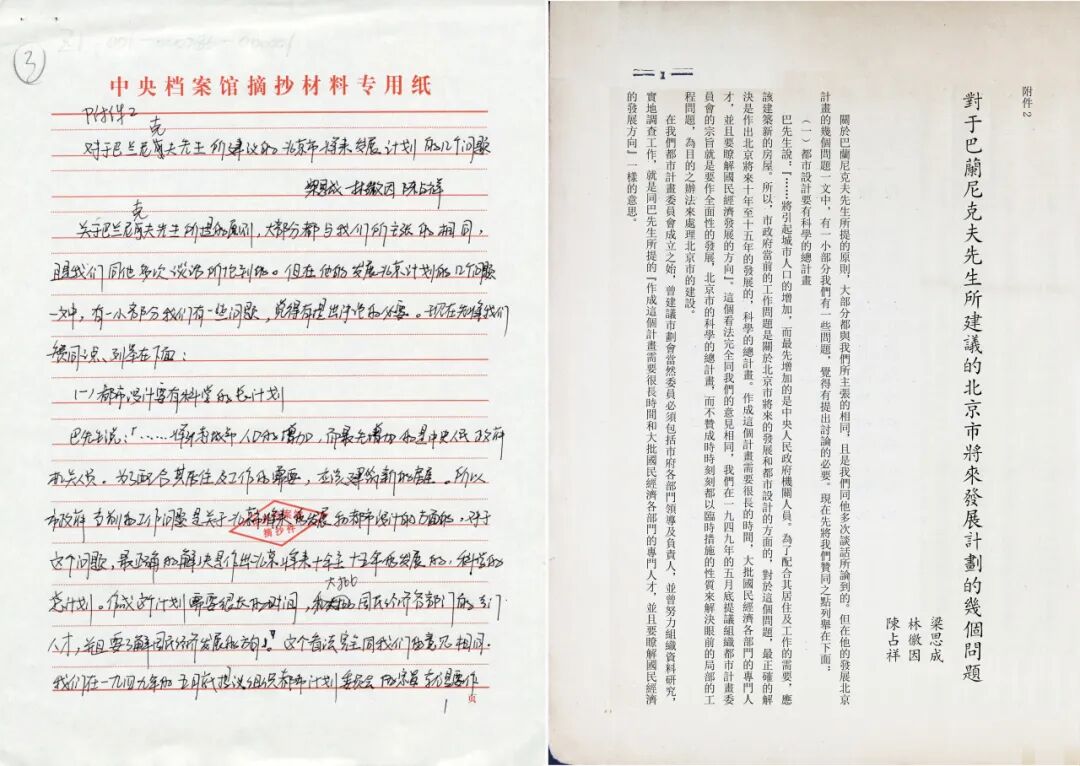 3
中央档案馆摘抄材料专用纸
附件2
克
对于巴兰尼夫先生所建议的北京市将来发展计划的几个问题
梁思成 林徽因 陈占祥
克
关于巴兰尼夫先生所提的原则，大部分都与我们所主张的相同，
且是我们同他多次谈话所论到的。但在他的发展北京计划的几个问题
一文中，有一小部分我们有一些问题，觉得有提出讨论的必要。现在先将我们
赞同之点，列举在下面：
(一)都市设计要有科学的总计划
巴先生说：「……将引起城市人口的增加，而最先增加的是中央人民政府
机关人员。为了配合其居住及工作的需要，应该建筑新的房屋。所以
市政府当前的工作问题是关于北京将来的发展和都市设计的方面的，对于
摘抄件
这个问题，最正确的解决是作出北京将来十年至十五年的发展的，科学的
大批
总计划。作成这个计划需要很长的时间，和国民经济各部门的专门
人才，并且要了解国民经济发展的方向」。这个看法完全同我们的意见相同，
我们在一九四九年的五月底提议组织都市计划委员会的宗旨就是要作
1
页
1
附件2
對于巴蘭尼克夫先生所建議的北京市將來發展計劃的幾個問題
梁思成
林徽因
陳占祥
關於巴蘭尼克夫先生所提的原則，大部分都與我們所主張的相同，且是我們同他多次談話所論到的。但在他的發展北京
計畫的幾個問題一文中，有一小部分我們有一些問題，覺得有提出討論的必要。現在先將我們贊同之點列舉在下面：
（一）都市設計要有科學的總計畫
巴先生說：『……將引起城市人口的增加，而最先增加的是中央人民政府機關人員。為了配合其居住及工作的需要，應
該建築新的房屋。所以，市政府當前的工作問題是關於北京市將來的發展和都市設計的方面的，對於這個問題，最正確的解
決是作出北京將來十年至十五年的發展的，科學的總計畫。作成這個計畫需要很長的時間，大批國民經濟各部門的專門人
才，並且要瞭解國民經濟發展的方向』。這個看法完全同我們的意見相同，我們在一九四九年的五月底提議組織都市計畫委
員會的宗旨就是要作全面性的發展，北京市的科學的總計畫，而不贊成時時刻刻都以臨時措施的性質來解決眼前的局部的工
程問題，為目的之辦法來處理北京市的建設。
在我們都市計畫委員會成立之始，曾建議市劃會當然委員必須包括市府各部門領導及負責人，並曾努力組織資料研究，
實地調查工作，就是同巴先生所提的『作成這個計畫需要很長時間和大批國民經濟各部門的專門人才，並且要瞭解國民經濟
的發展方向』一樣的意思。